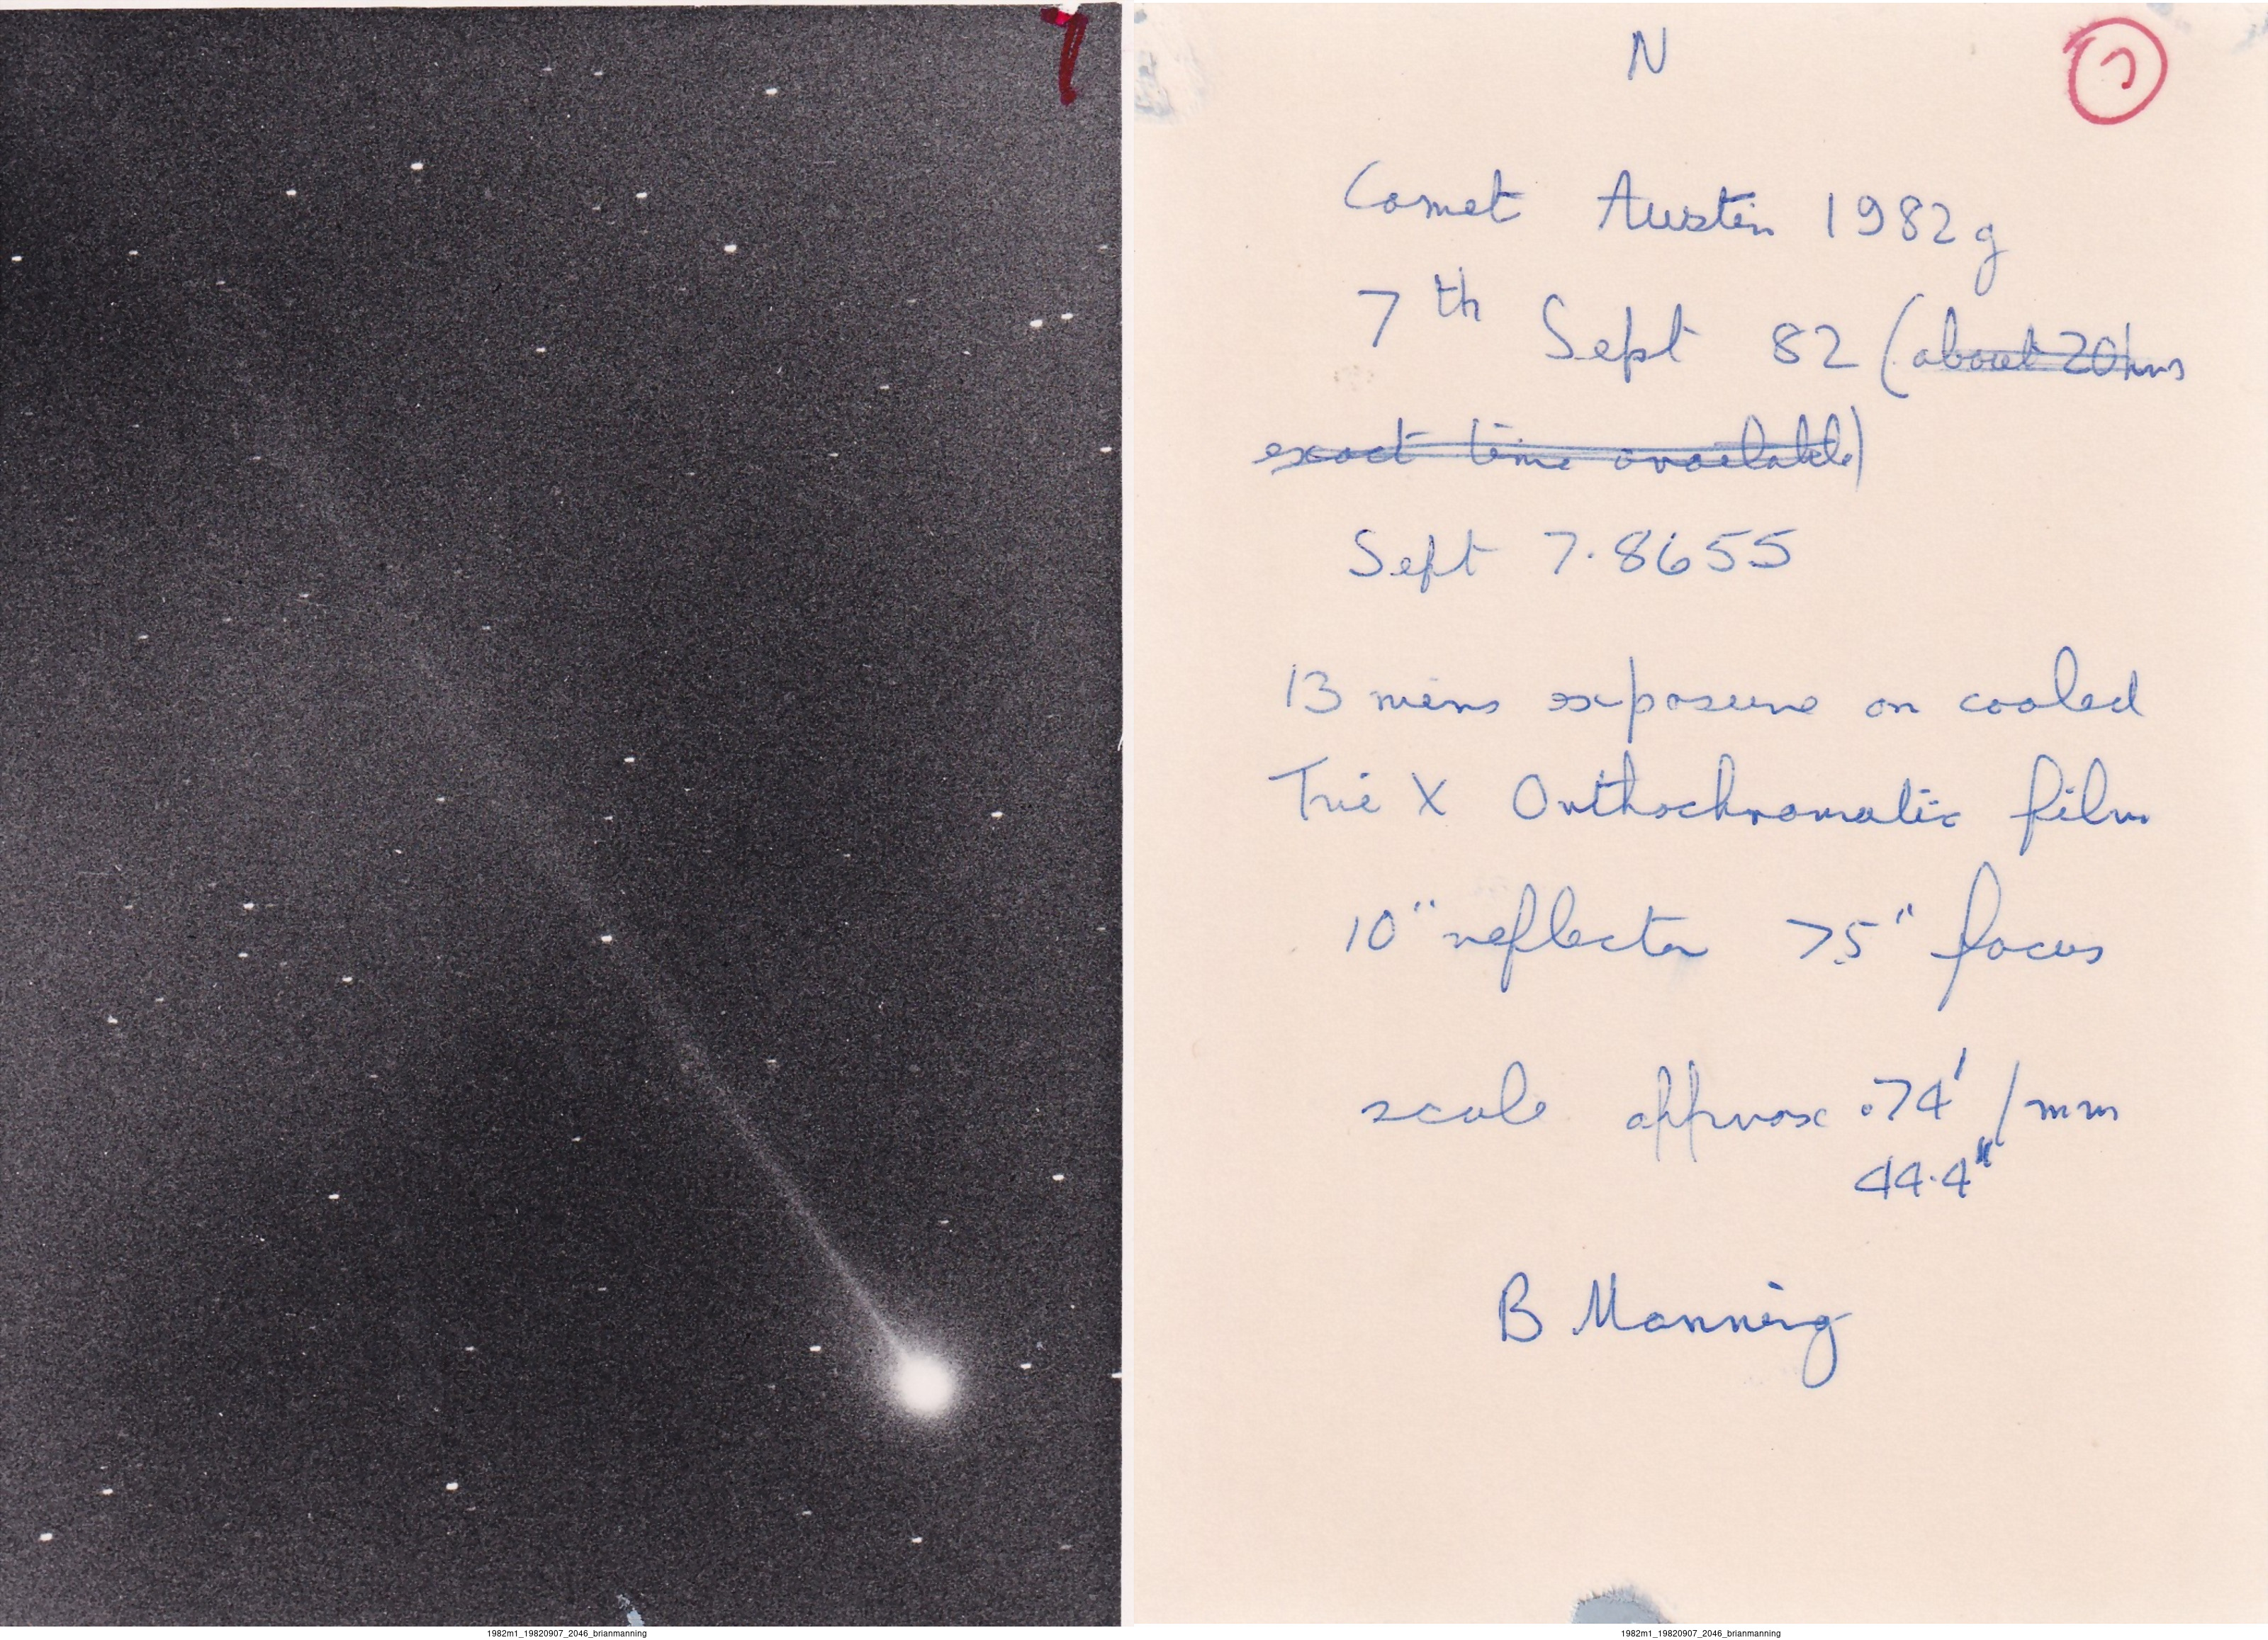 N
Comet Austin 1982g
7th Sept 82 (about 20hrs
exact time available)
Sept 7.8655
13 mins exposure on cooled
Tri X Orthochromatic film
10" reflector 75" focus
scale approx .74' / mm
44.4"
B Manning
1982m1_19820907_2046_brianmanning
1982m1_19820907_2046_brianmanning